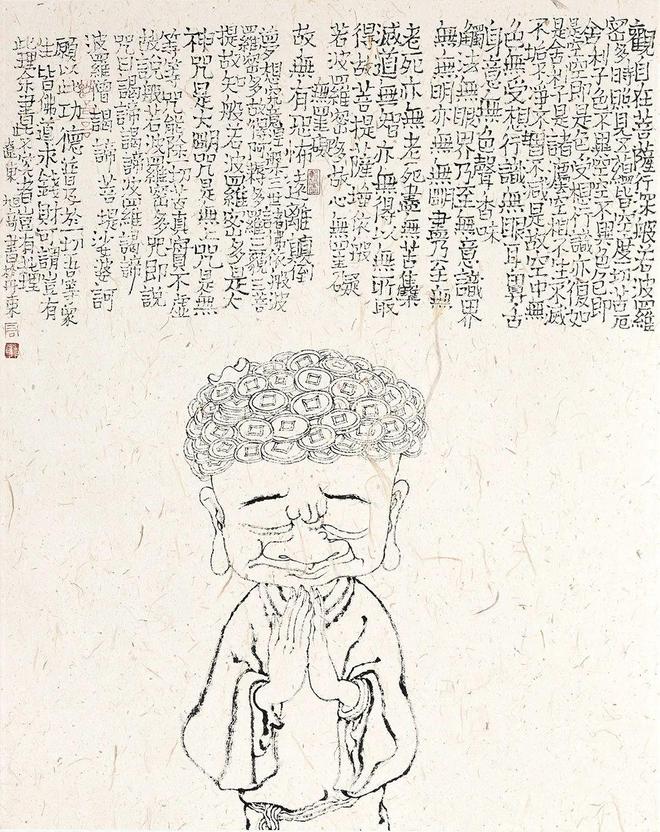 觀自在菩薩行深般若波羅
密多時照見五蘊皆空度一切苦厄
舍利子色不異空空不異色色即
是空空即是色受想行識亦復如
是舍利子是諸法空相不生不滅
不垢不淨不增不減是故空中無
色無受想行識無眼耳鼻舌
身意無色聲香味
觸法無眼界乃至無意識界
無無明亦無無明盡乃至無
老死亦無老死盡無苦集
滅道無智亦無得以無所
得故菩提薩埵依般
若波羅密多故心無罣礙
無罣礙
故無有恐怖遠離顛倒
夢想究竟涅槃三世諸佛依般波
羅密多故得阿耨多羅三藐三菩
提故知般若波羅密多是大
神咒是大明咒是無上咒是無
等等咒能除一切苦真實不虛
故說般若波羅密多咒即說
咒曰謁諦謁諦波羅謁諦
波羅僧謁諦菩提娑婆訶
願以此功德普及於一切我等眾
生皆佛道豈有
此理余書此